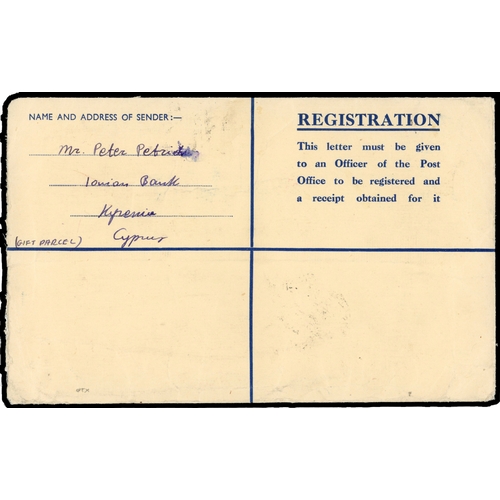 NAME AND ADDRESS OF SENDER:—
Mr. Peter Petrides
Ionian Bank
Kyrenia
Cyprus
(GIFT PARCEL)
REGISTRATION
This letter must be given
to an Officer of the Post
Office to be registered and
a receipt obtained for it